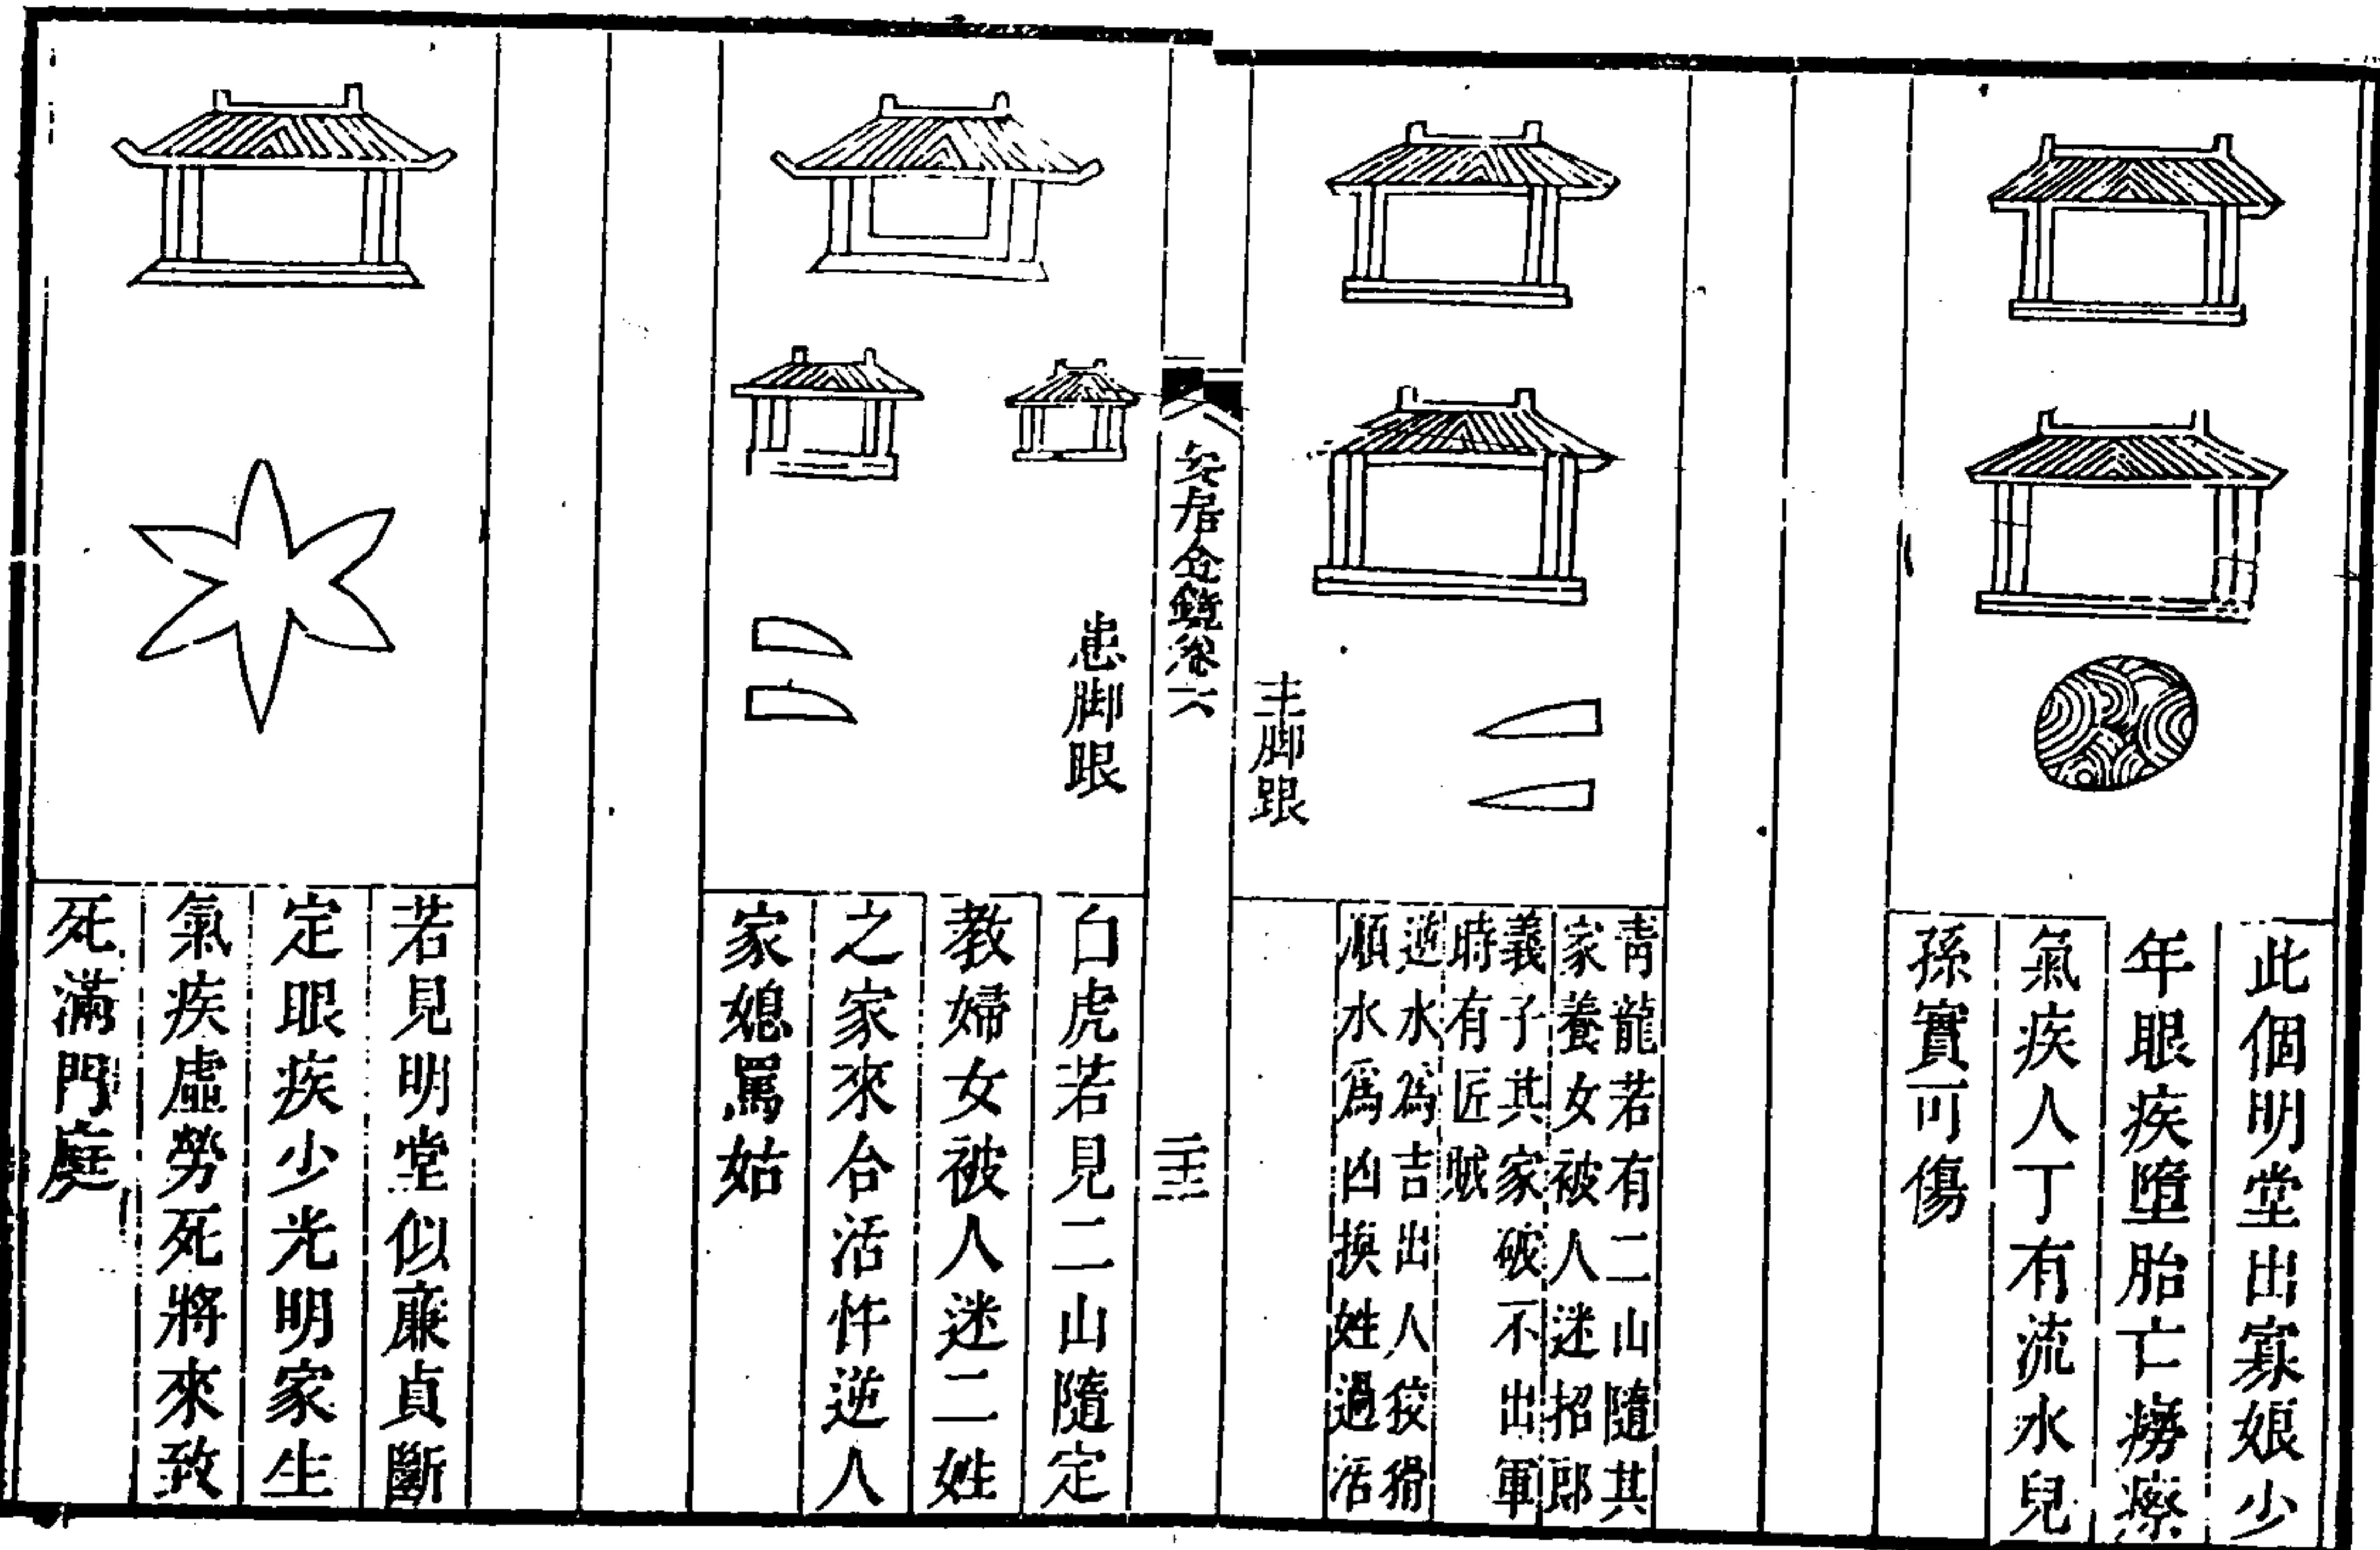 此個明堂出寡娘少
年眼疾墮胎亡癆瘵
氣疾人丁有流水兒
孫實可傷
主脚跟
青龍若有二山隨其
家養女被人迷招郎
義子其家破不出軍
時有匠賊
逆水為吉出人狡猾
順水爲凶換姓過活
安居金鏡卷六
患脚跟
白虎若見二山隨定
教婦女被人迷二姓
之家來合活忤逆人
家媳罵姑
若見明堂似廉貞斷
定眼疾少光明家生
氣疾虛勞死將來致
死滿門庭